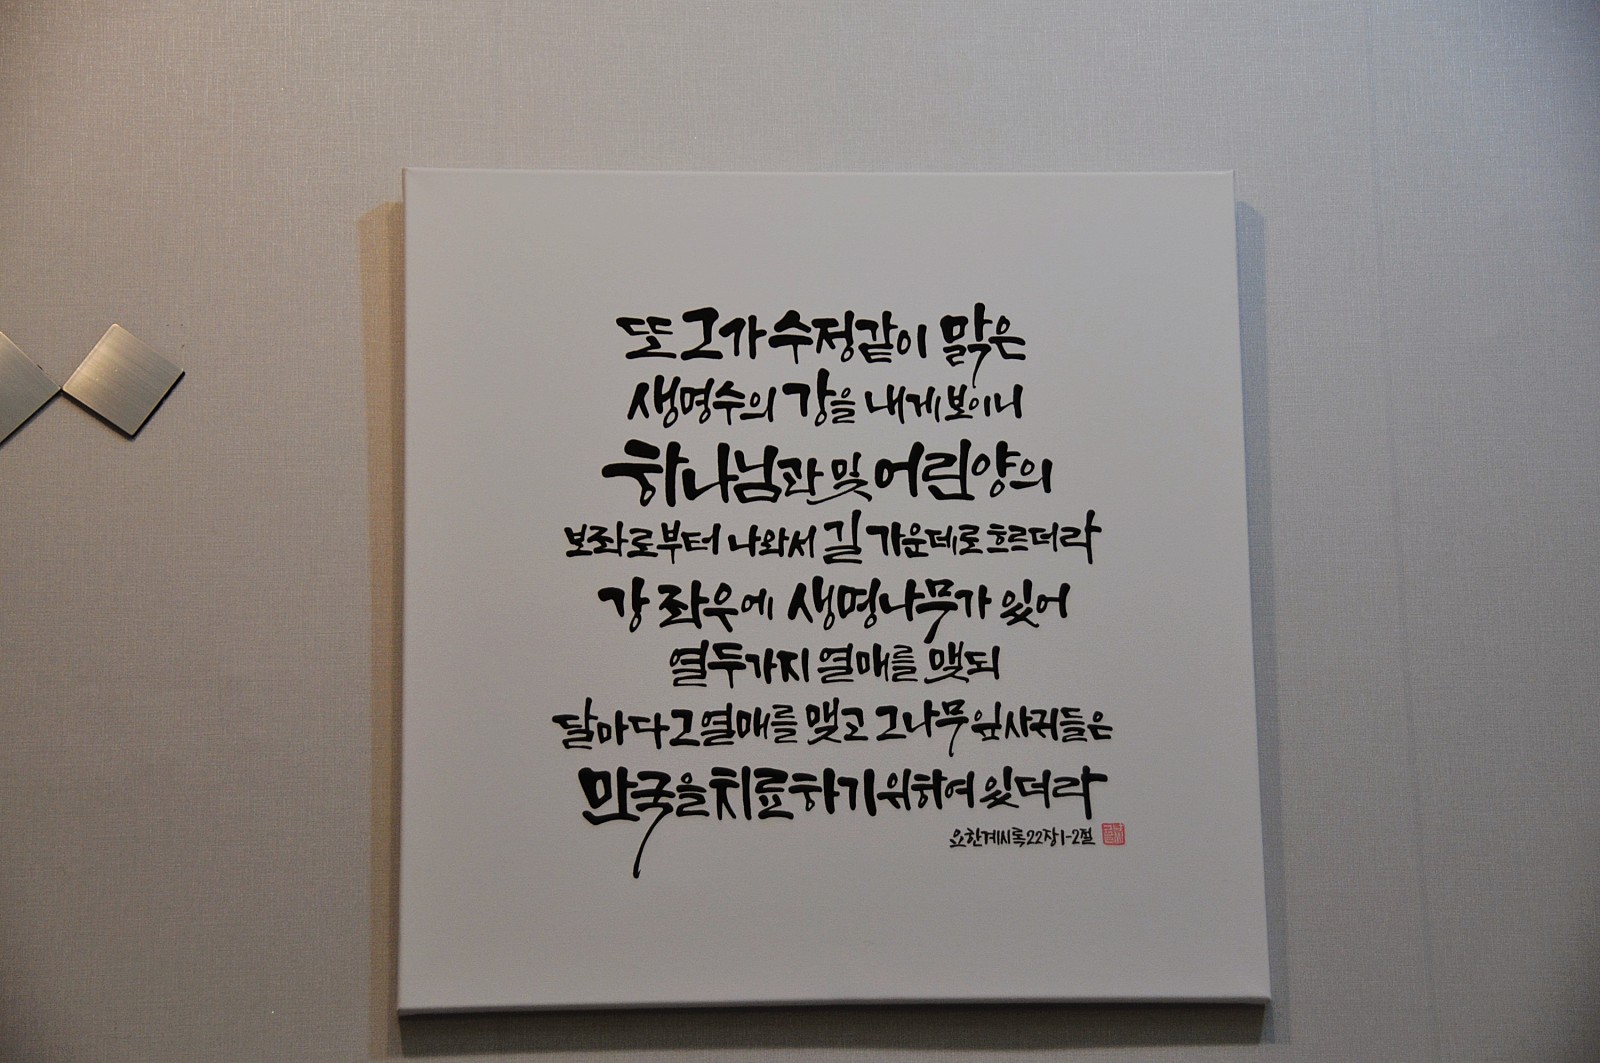 또 그가 수정같이 맑은
생명수의 강을 내게 보이니
하나님과 및 어린양의
보좌로부터 나와서 길 가운데로 흐르더라
강 좌우에 생명나무가 있어
열두가지 열매를 맺되
달마다 그 열매를 맺고 그 나무 잎사귀들은
만국을 치료하기 위하여 있더라
요한계시록22장1-2절